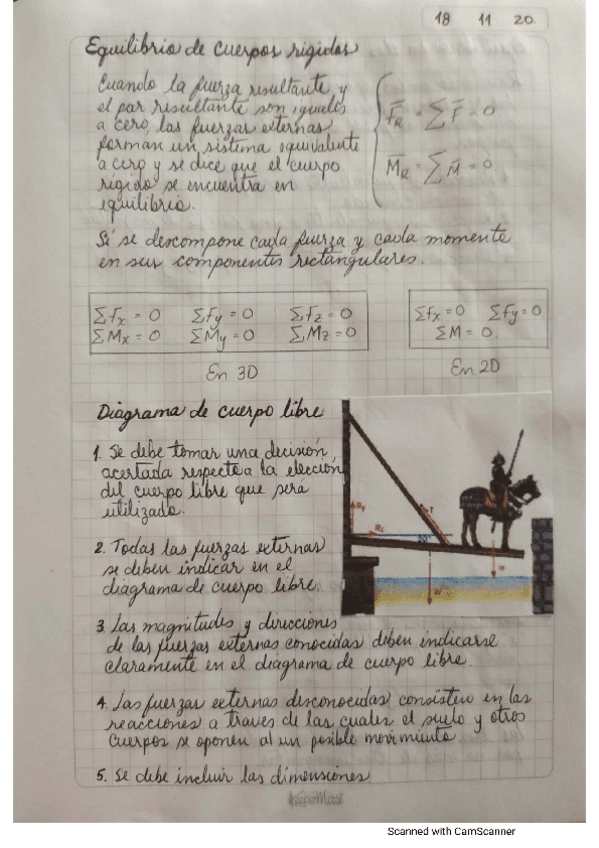 18 11 20
Equilibrio de cuerpos rigidos
Cuando la fuerza resultante y
el par resultante son iguales
a cero, las fuerzas externas
forman un sistema equivalente
a cero y se dice que el cuerpo
rigido se encuentra en
equilibrio.
F̅R = ∑ F̅ = 0
M̅R = ∑ M̅ = 0
Si se descompone cada fuerza y cada momento
en sus componentes rectangulares.
∑Fx = 0 ∑Fy = 0 ∑Fz = 0
∑Mx = 0 ∑My = 0 ∑Mz = 0
En 3D
∑Fx = 0 ∑Fy = 0
∑M = 0.
En 2D
Diagrama de cuerpo libre
1. Se debe tomar una decisión
acertada respecto a la elección
del cuerpo libre que será
utilizado.
2. Todas las fuerzas externas
se deben indicar en el
diagrama de cuerpo libre.
3. Las magnitudes y direcciones
de las fuerzas externas conocidas deben indicarse
claramente en el diagrama de cuerpo libre.
4. Las fuerzas externas desconocidas consisten en las
reacciones a traves de las cuales el suelo y otros
cuerpos se oponen al un posible movimiento.
5. Se debe incluir las dimensiones
Scanned with CamScanner